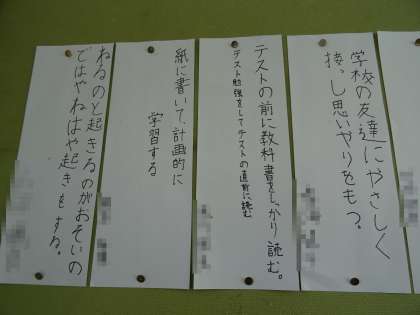 学校の友達にやさしく
接っし思いやりをもつ。
テストの前に教科書をしっかり読む。
テスト勉強をしてテストの直前に読む
紙に書いて、計画的に
学習する
ねるのと起きるのがおそいの
ではやねはや起きをする。